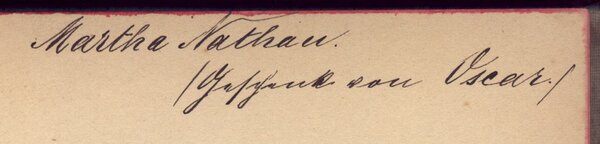 Martha Nathan.
/Geschenk von Oscar./